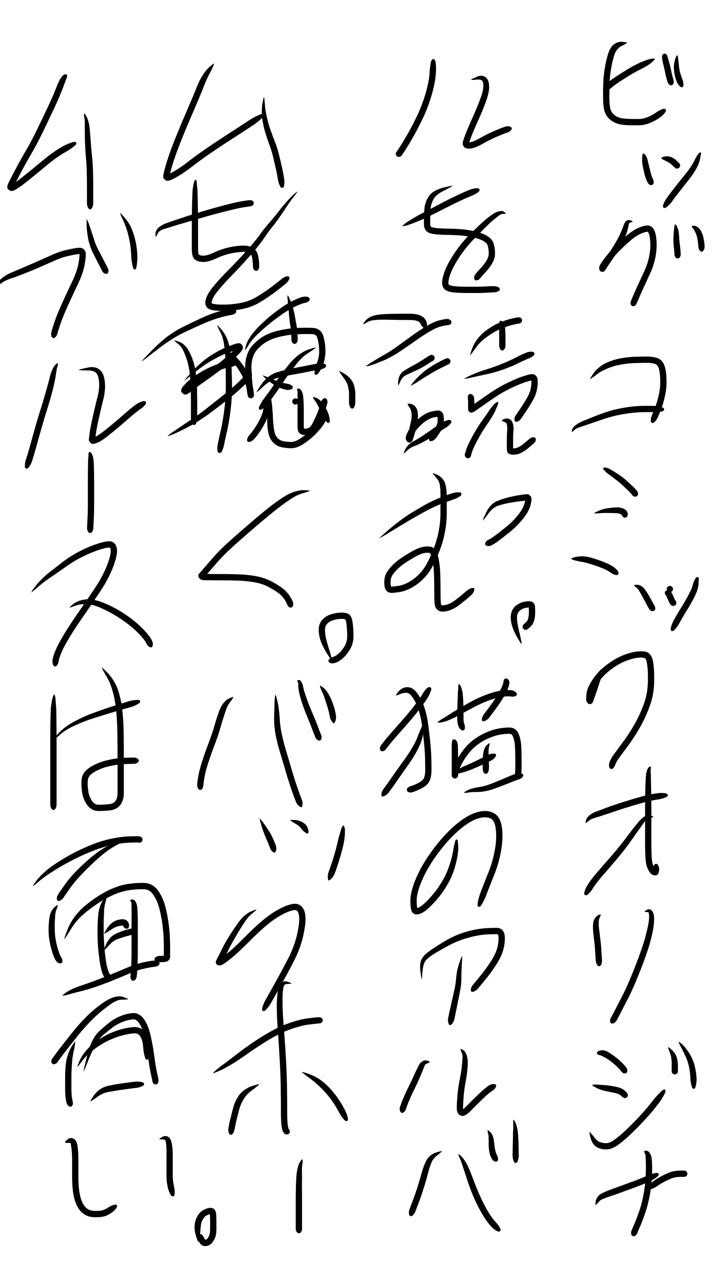 ビッグコミックオリジナ
ルを読む。猫のアルバ
ムを聴く。バックホー
ムブルースは面白い。